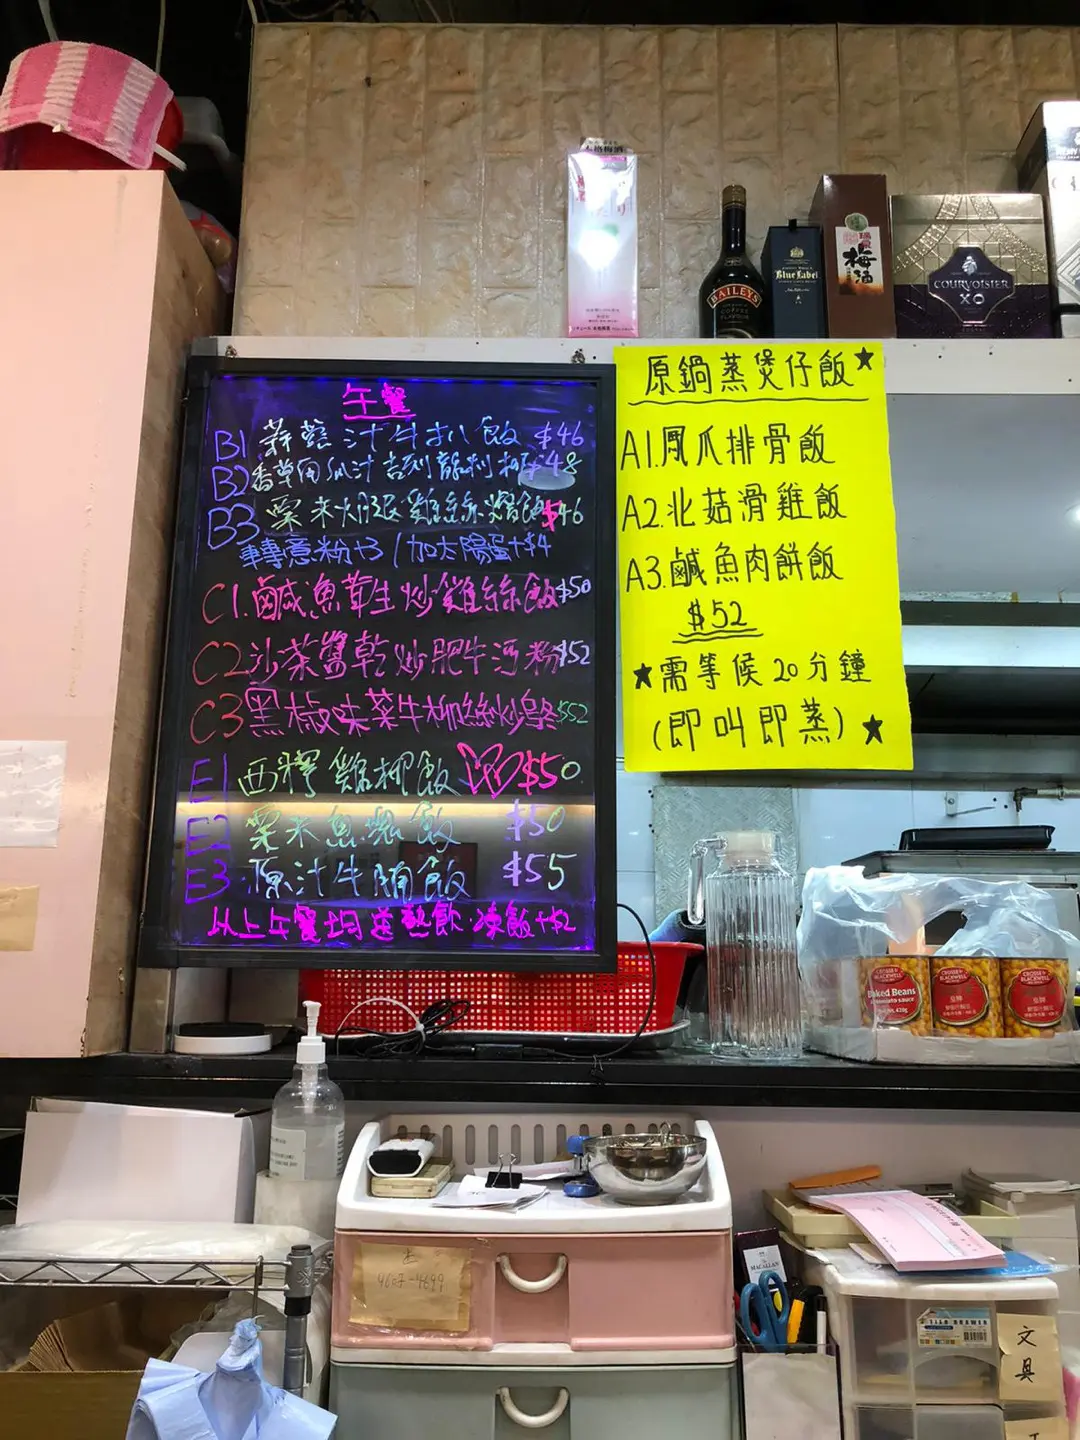 午餐
B1 蒜蓉汁牛扒飯 $46
B2 香草 汁吉列 $48
B3 粟米火腿雞絲燴飯 $46
轉意粉+3 / 加太陽蛋+$4
C1.鹹魚 生炒雞絲飯 $50
C2 沙茶醬乾炒肥牛河粉 $52
C3 黑椒味菜牛柳絲炒 $52
E1 西檸雞柳飯 $50
E2 粟米魚塊飯 $50
E3.原汁牛腩飯 $55
以上午餐均送熱飲.凍飲+$2
原鍋蒸煲仔飯★
A1.鳳爪排骨飯
A2.北菇滑雞飯
A3.鹹魚肉餅飯
$52
★需等候20分鐘
(即叫即蒸)★
本格梅酒
BAILEYS
COFFEE
FLAVOUR
Blue Label
梅酒
COURVOISIER
XO
CROSSE &
BLACKWELL
Baked Beans
CROSSE &
BLACKWELL
CROSSE &
BLACKWELL
MACALLAN
文具